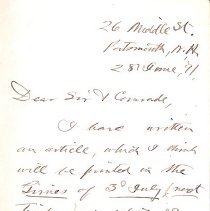 26 Middle St.
Portsmouth, N.H.
28 June, '11
Dear Sir & Comrade,
I have written
an article, which I think
will be printed in the
Times of 3d July (next